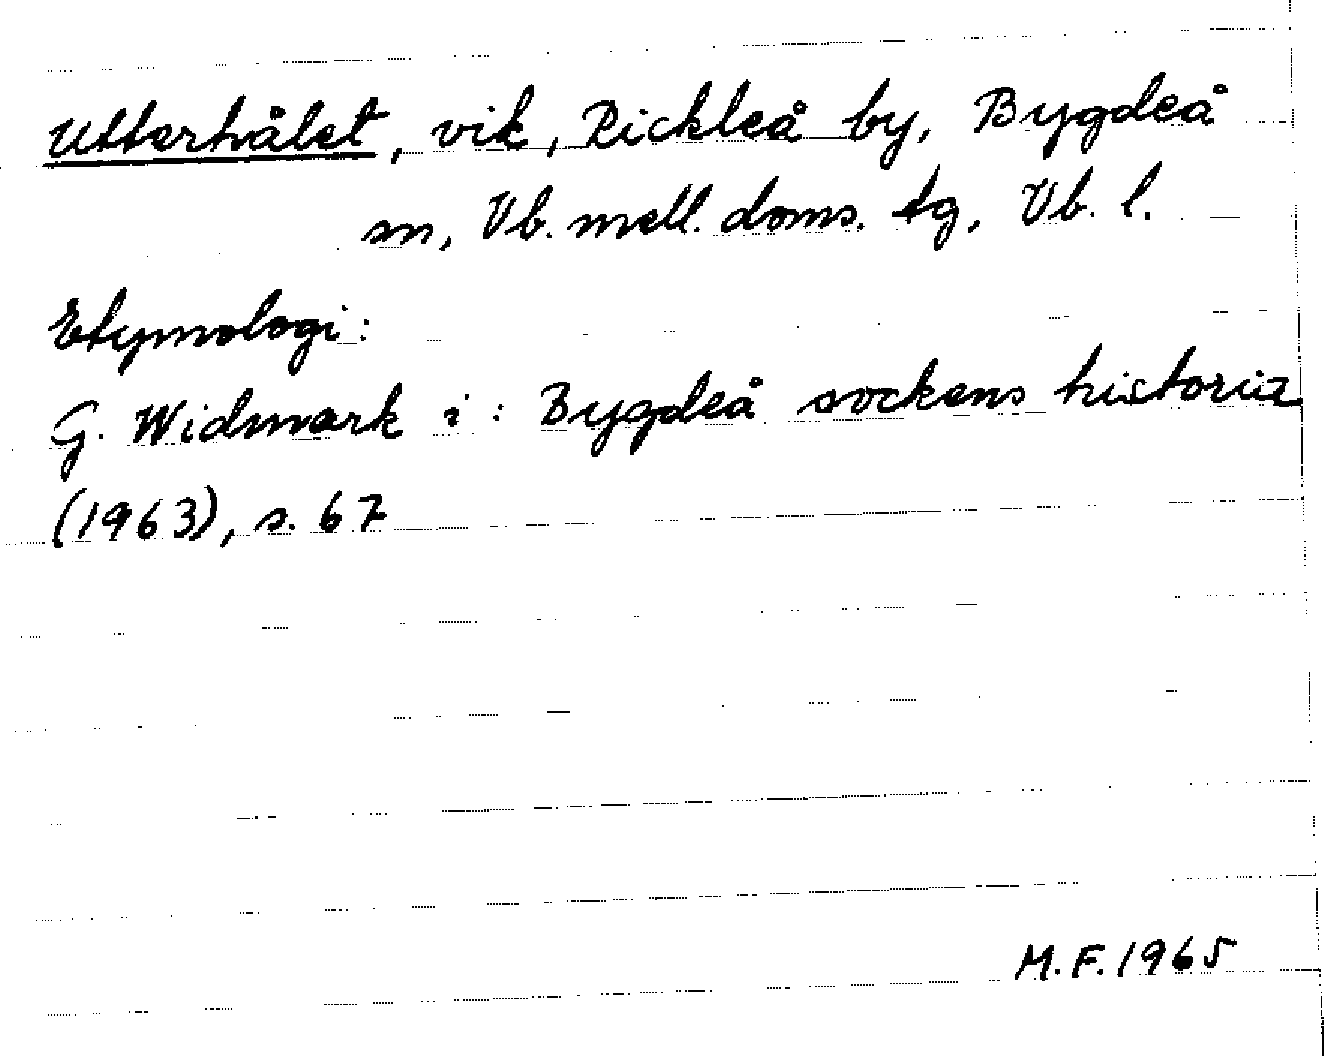 Utterhålet, vik, Rickleå by, Bygdeå
sn, Vb. mell. doms. tg, Vb. l.
Etymologi:
G. Widmark i: Bygdeå sockens historia
(1963), s. 67
M.F. 1965